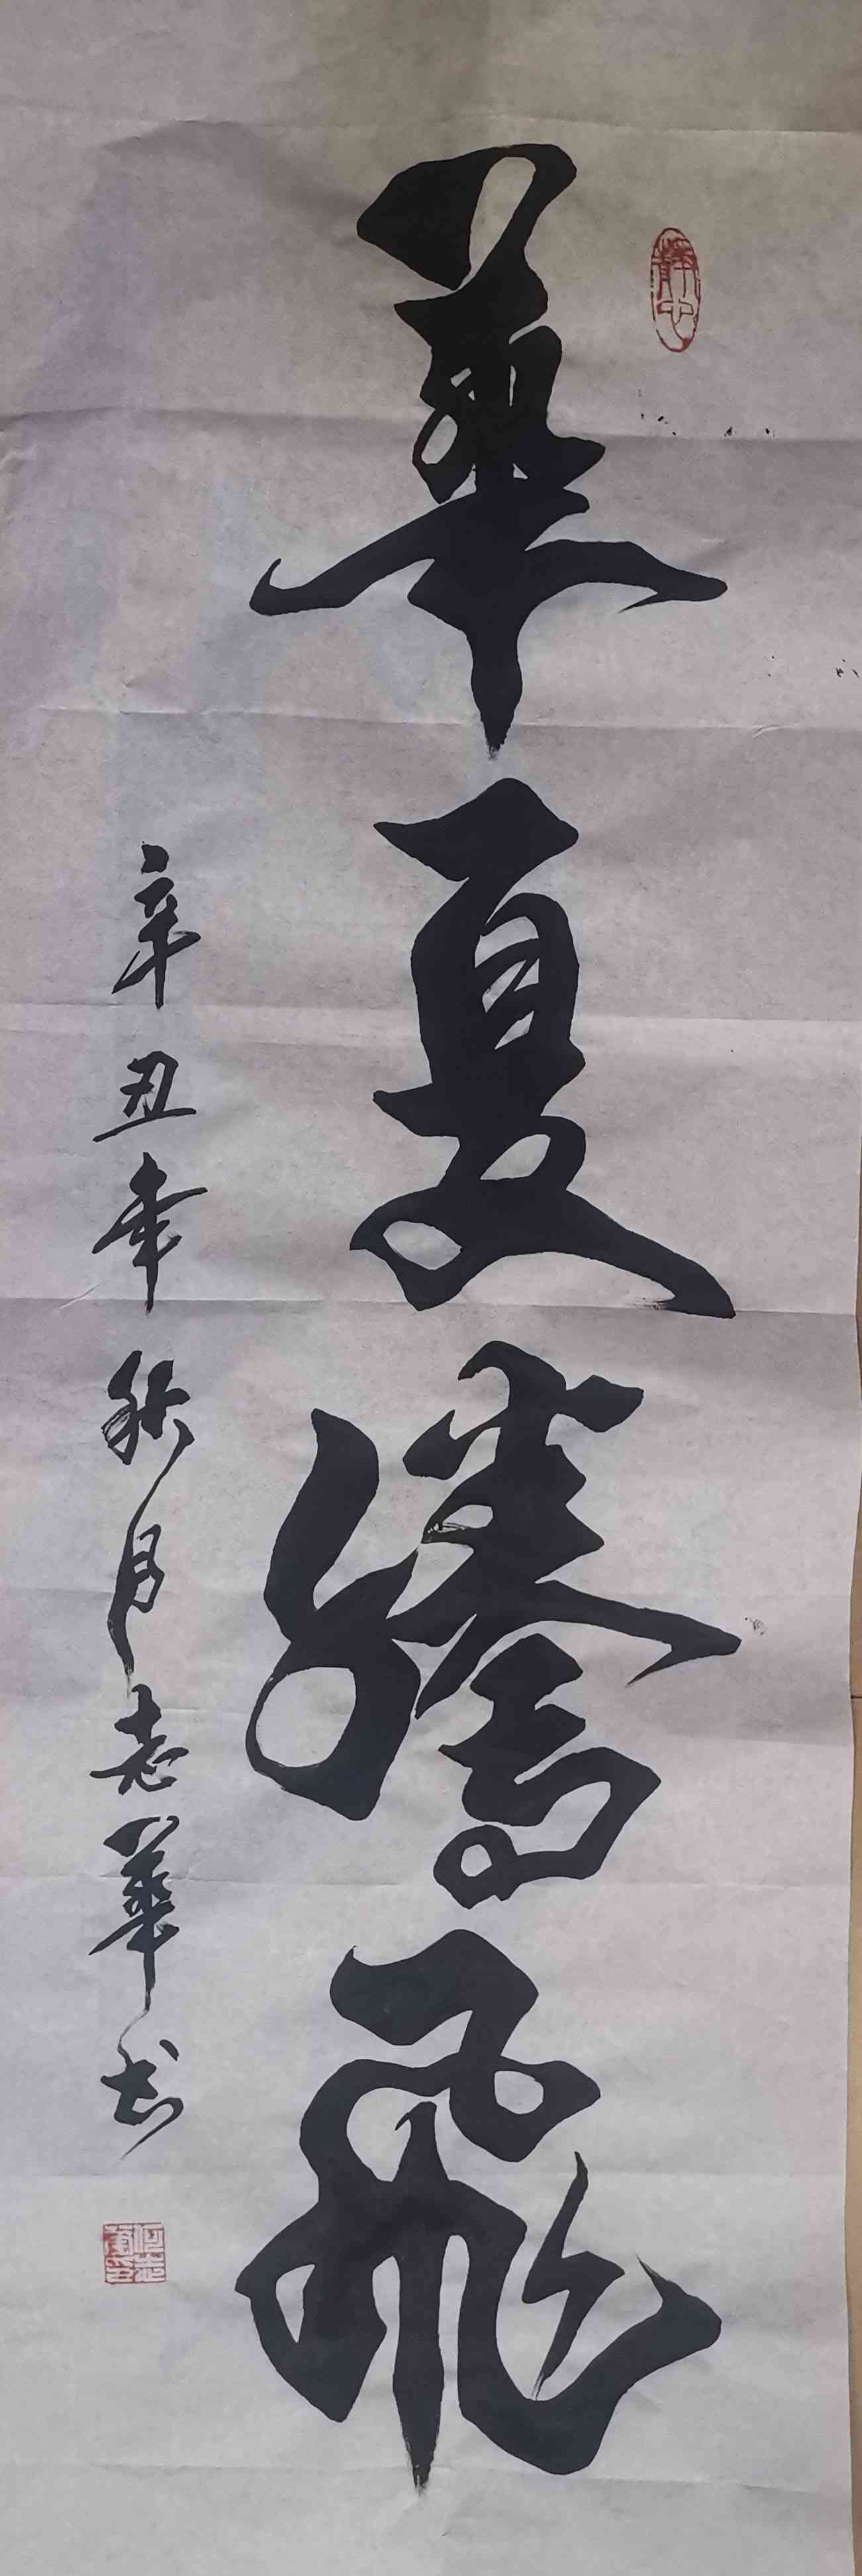 華夏騰飛
辛丑年秋月志華书